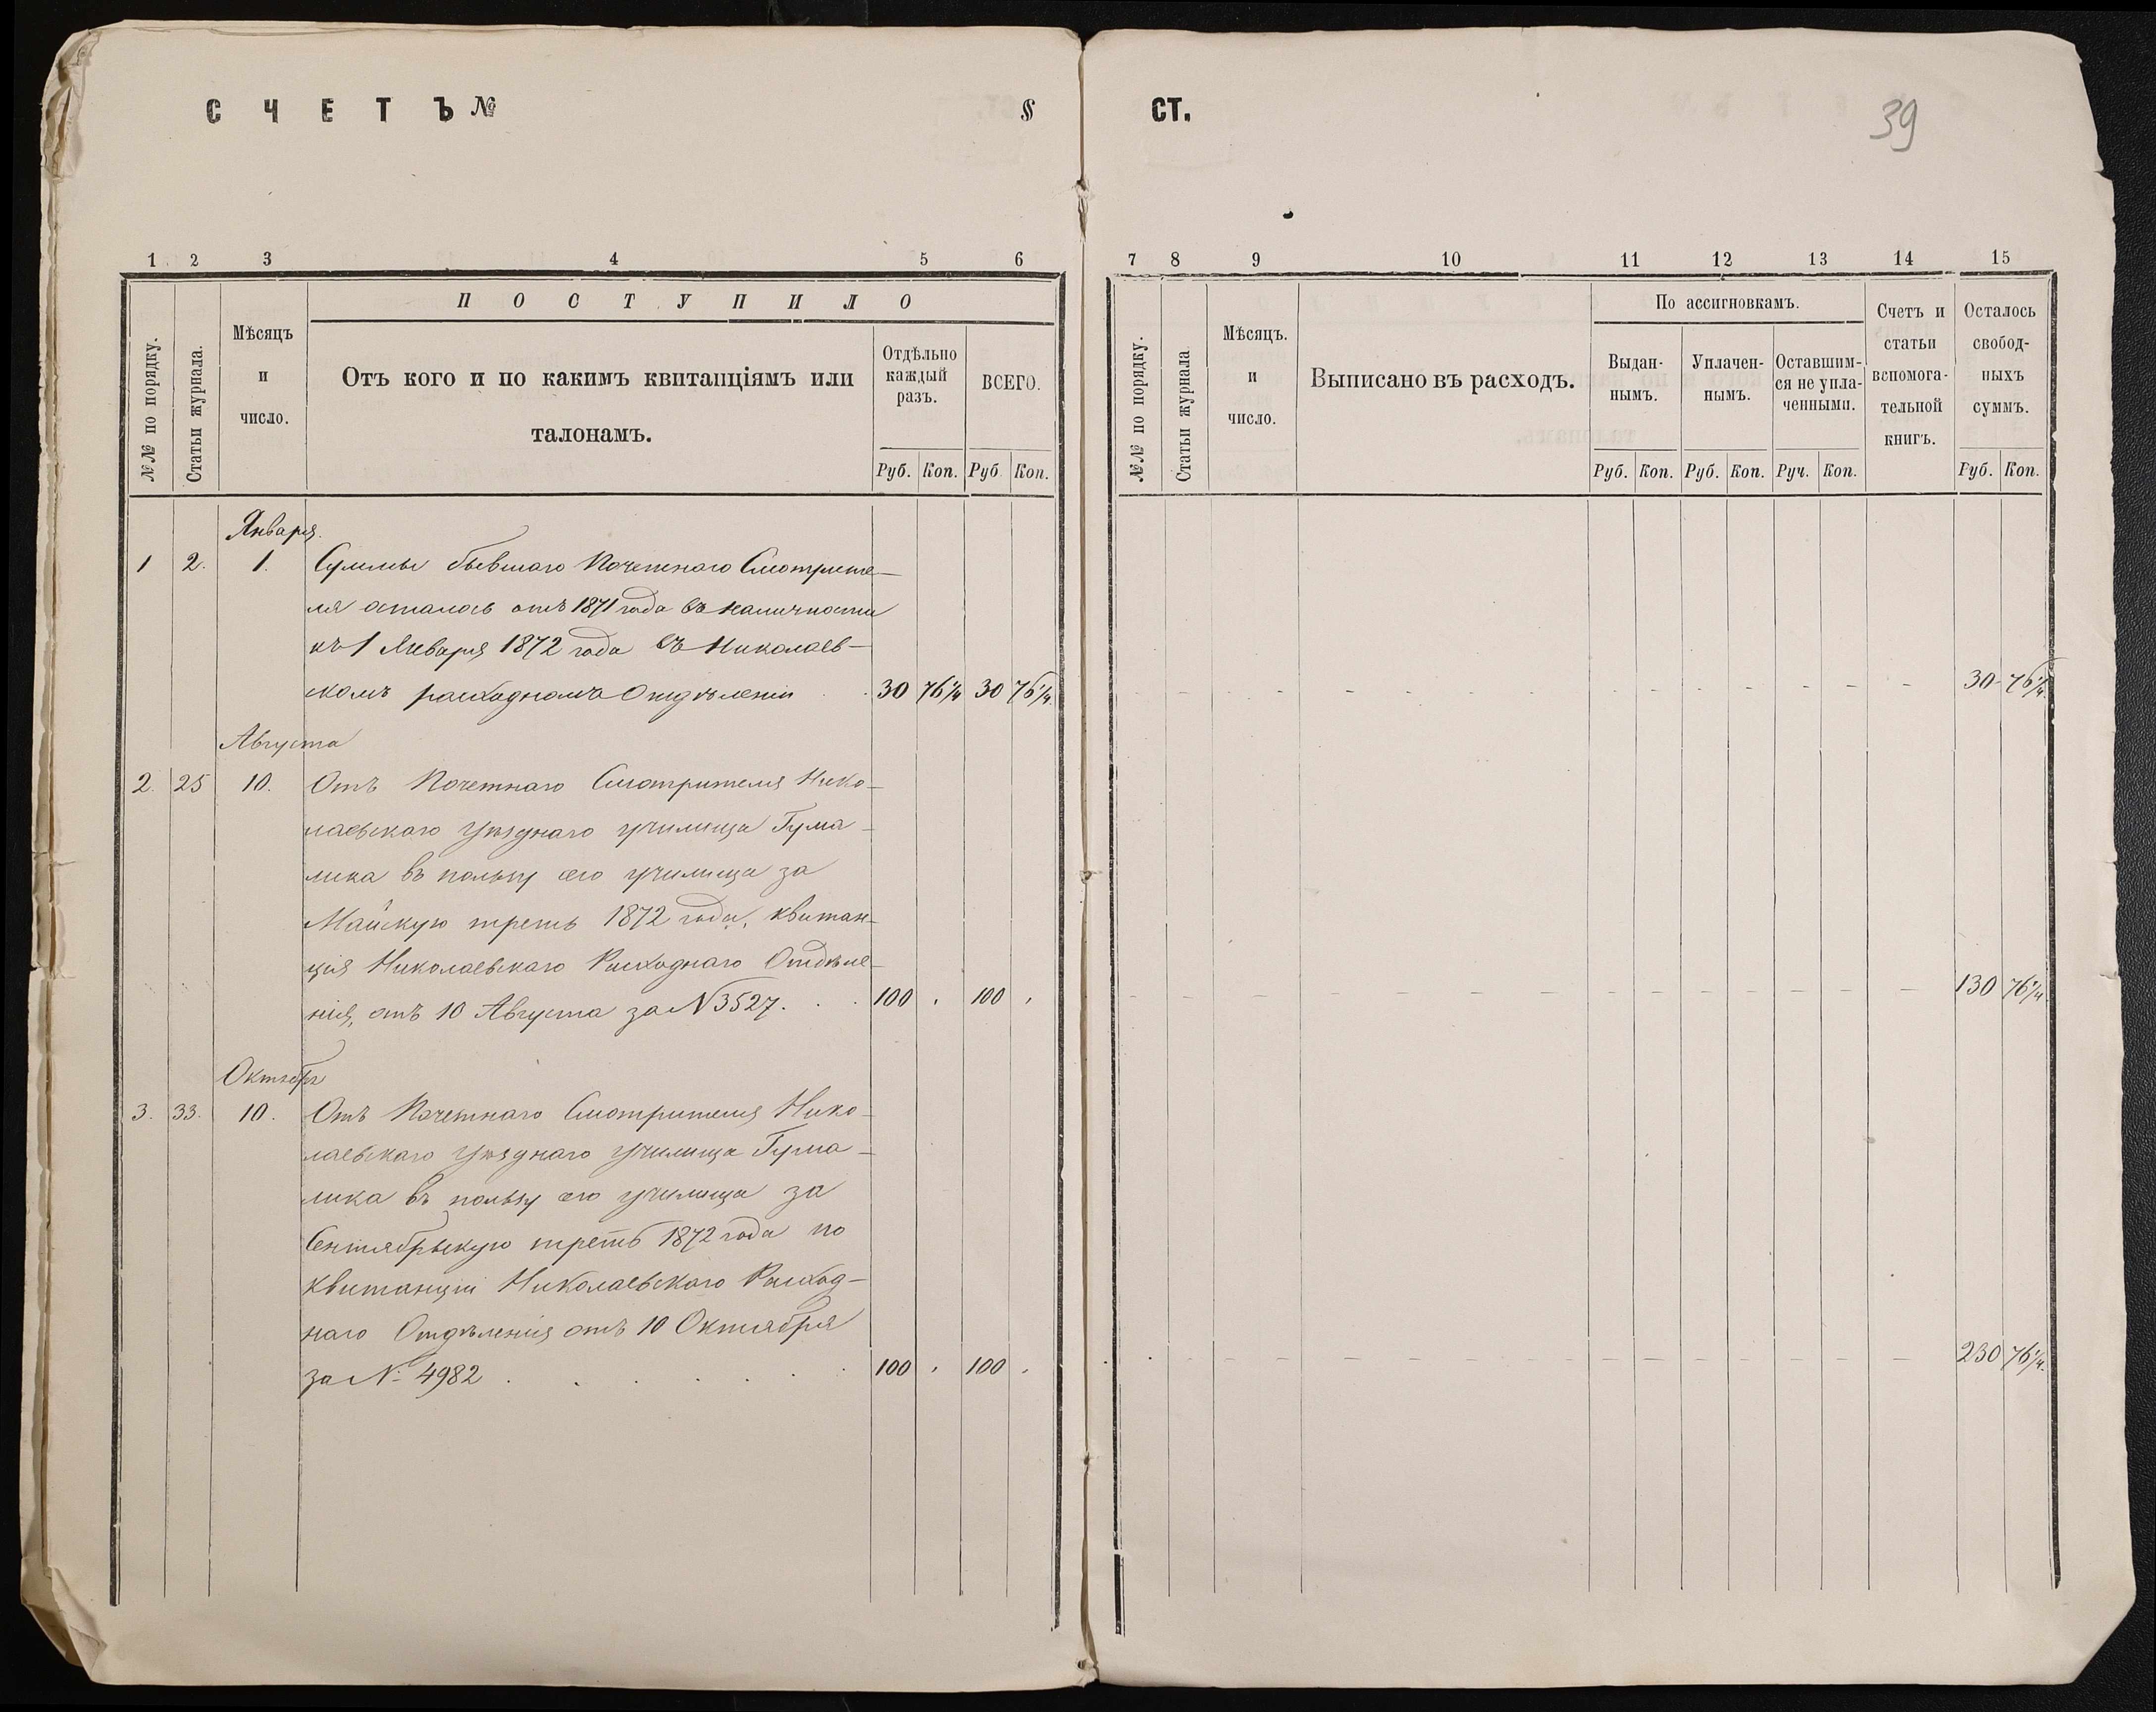 СЧЕТЪ № § СТ.
39
1 2 3 4 5 6
ПОСТУПИЛО
№№ по порядку.
Статьи журнала.
Мѣсяцъ и число.
Отъ кого и по какимъ квитанціямъ или
талонамъ.
Отдѣльно каждый разъ.
ВСЕГО.
Руб. Коп. Руб Коп.
Января
1 2. 1. Суммы бывшаго Почетнаго Смотрите-
ля осталось отъ 1871 года въ наличности
къ 1 Января 1872 года въ Николаев-
скомъ расходномъ Отдѣленіи 30 76¼ 30 76¼
Августа
2. 25 10. Отъ Почетнаго Смотрителя Нико-
лаевскаго Уѣзднаго училища Гума-
лика въ пользу его училища за
Майскую треть 1872 года, квитан-
ція Николаевскаго Расходнаго Отдѣле-
нія, отъ 10 Августа за N 3527. 100 , 100 ,
Октябрь
3. 33. 10. Отъ Почетнаго Смотрителя Нико-
лаевскаго Уѣзднаго училища Гума-
лика въ пользу его училища за
Сентябрьскую треть 1872 года по
квитанціи Николаевскаго Расход-
наго Отдѣленія отъ 10 Октября
за N 4982 100 , 100 ,
7 8 9 10 11 12 13 14 15
№№ по порядку.
Статьи журнала
Мѣсяцъ. и число.
Выписано въ расходъ.
По ассигновкамъ.
Выдан-
нымъ.
Уплачен-
нымъ.
Оставшим-
ся не упла-
ченными.
Счетъ и
статьи
вспомога-
тельной
книгъ.
Осталось
свобод-
ныхъ
суммъ.
Руб. Коп. Руб. Коп. Руч. Коп. Руб. Коп.
30 76¼
130 76¼
230 76¼